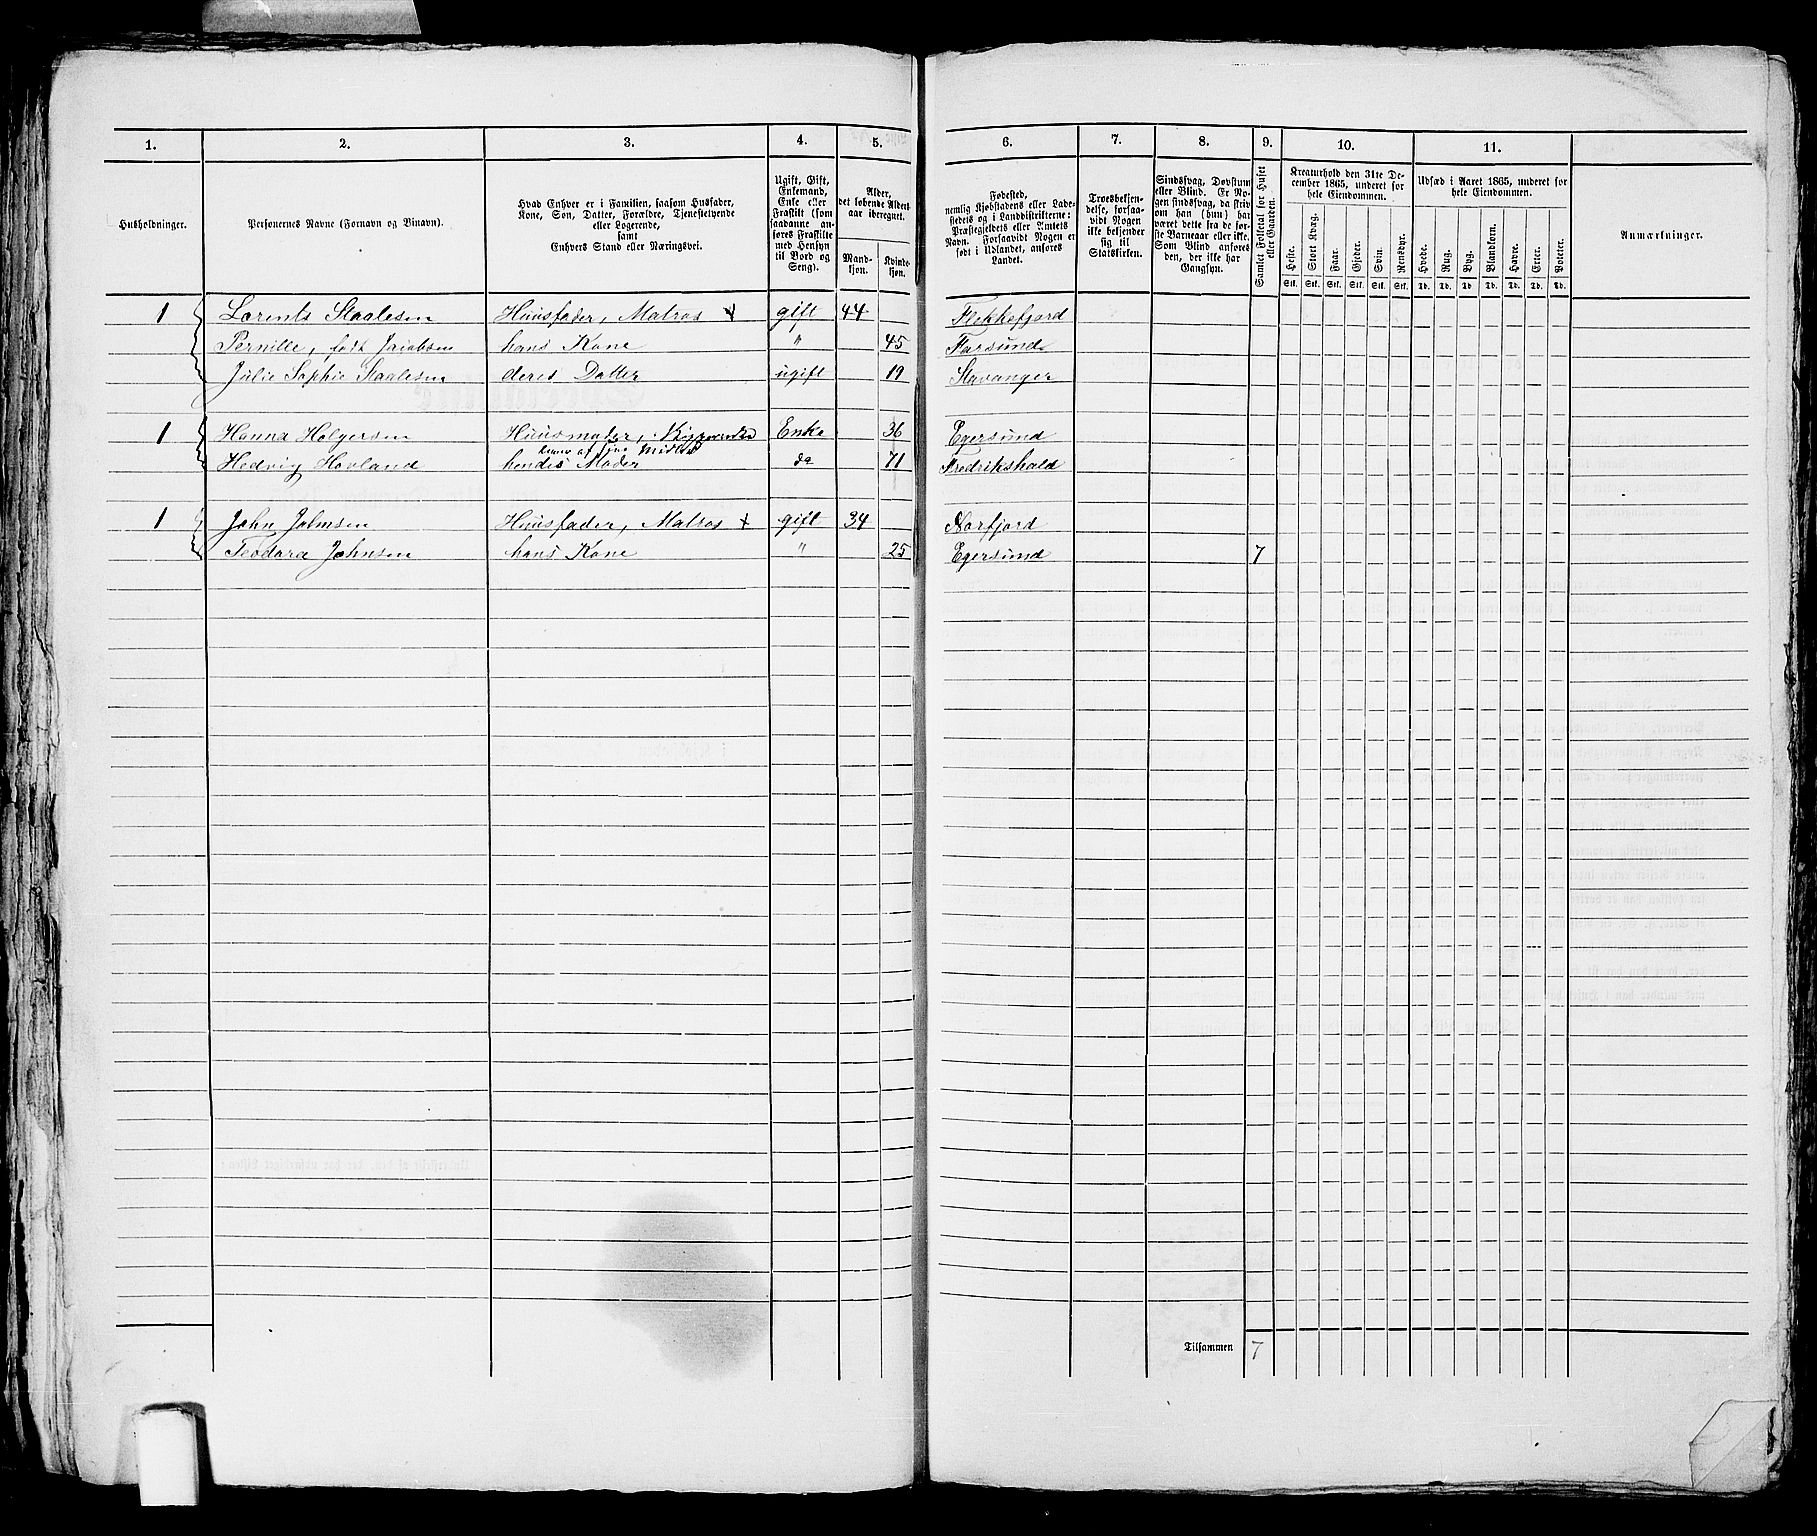 1. 2. 3. 4. 5. 6. 7. 8. 9. 10. 11.
Husholdninger.
Personernes Navne (Fornavn og Binavn).
Hvad Enhver er i Familien, saasom Husfader,
Kone, Søn, Datter, Forældre, Tjenestetyende
eller Logerende,
samt
Enhvers Stand eller Næringsvei.
Ugift, Gift,
Enkemand,
Enke eller
Fraskilt (som
saadanne an-
føres Fraskilte
med Hensyn
til Bord og
Seng).
Alder,
det løbende Alders-
aar iberegnet.
Mand-
kjøn.
Kvinde-
kjøn.
Fødested,
nemlig Kjøbstadens eller Lade-
stedets og i Landdistrikterne:
Præstegjeldets eller Amtets
Navn. Forsaavidt Nogen er
født i Udlandet, anføres
Landet.
Troesbekjen-
delse, forsaa-
vidt Nogen
ikke bekjender
sig til
Statskirken.
Sindssvag, Døvstum
eller Blind. Er No-
gen sindssvag, da skriv
om han (hun) har
været dette fra de før-
ste Barneaar eller ikke.
Som Blind anføres
den, der ikke har
Gangsyn.
Samlet Folketal for Huset
eller Gaarden.
Kreaturhold den 31te De-
cember 1865, underet for
hele Eiendommen.
Heste. Stort Kvæg. Faar. Gjeder. Svin. Rensdyr.
Stk. Stk. Stk. Stk. Stk. Stk.
Udsæd i Aaret 1865, underet for
hele Eiendommen.
Hvede. Rug. Byg. Blandkorn. Havre. Erter. Poteter.
Td. Td. Td. Td. Td. Td. Td.
Anmærkninger.
1 Lorents Staalesen Huusfader, Matros gift 44 Flekkefjord
Pernille, født Jacobsen hans Kone " 45 Farsund
Julie Sophie Staalesen deres Datter ugift 19 Stavanger
1 Hanna Holgersen Huusmoder, Enke 36 Egersund
Hedvig Hovland hendes Moder do 71 Fredrikshald
1 John Johnsen Huusfader, Matros gift 34 Norfjord
Teodora Johnsen hans Kone " 25 Egersund 7
Tilsammen 7